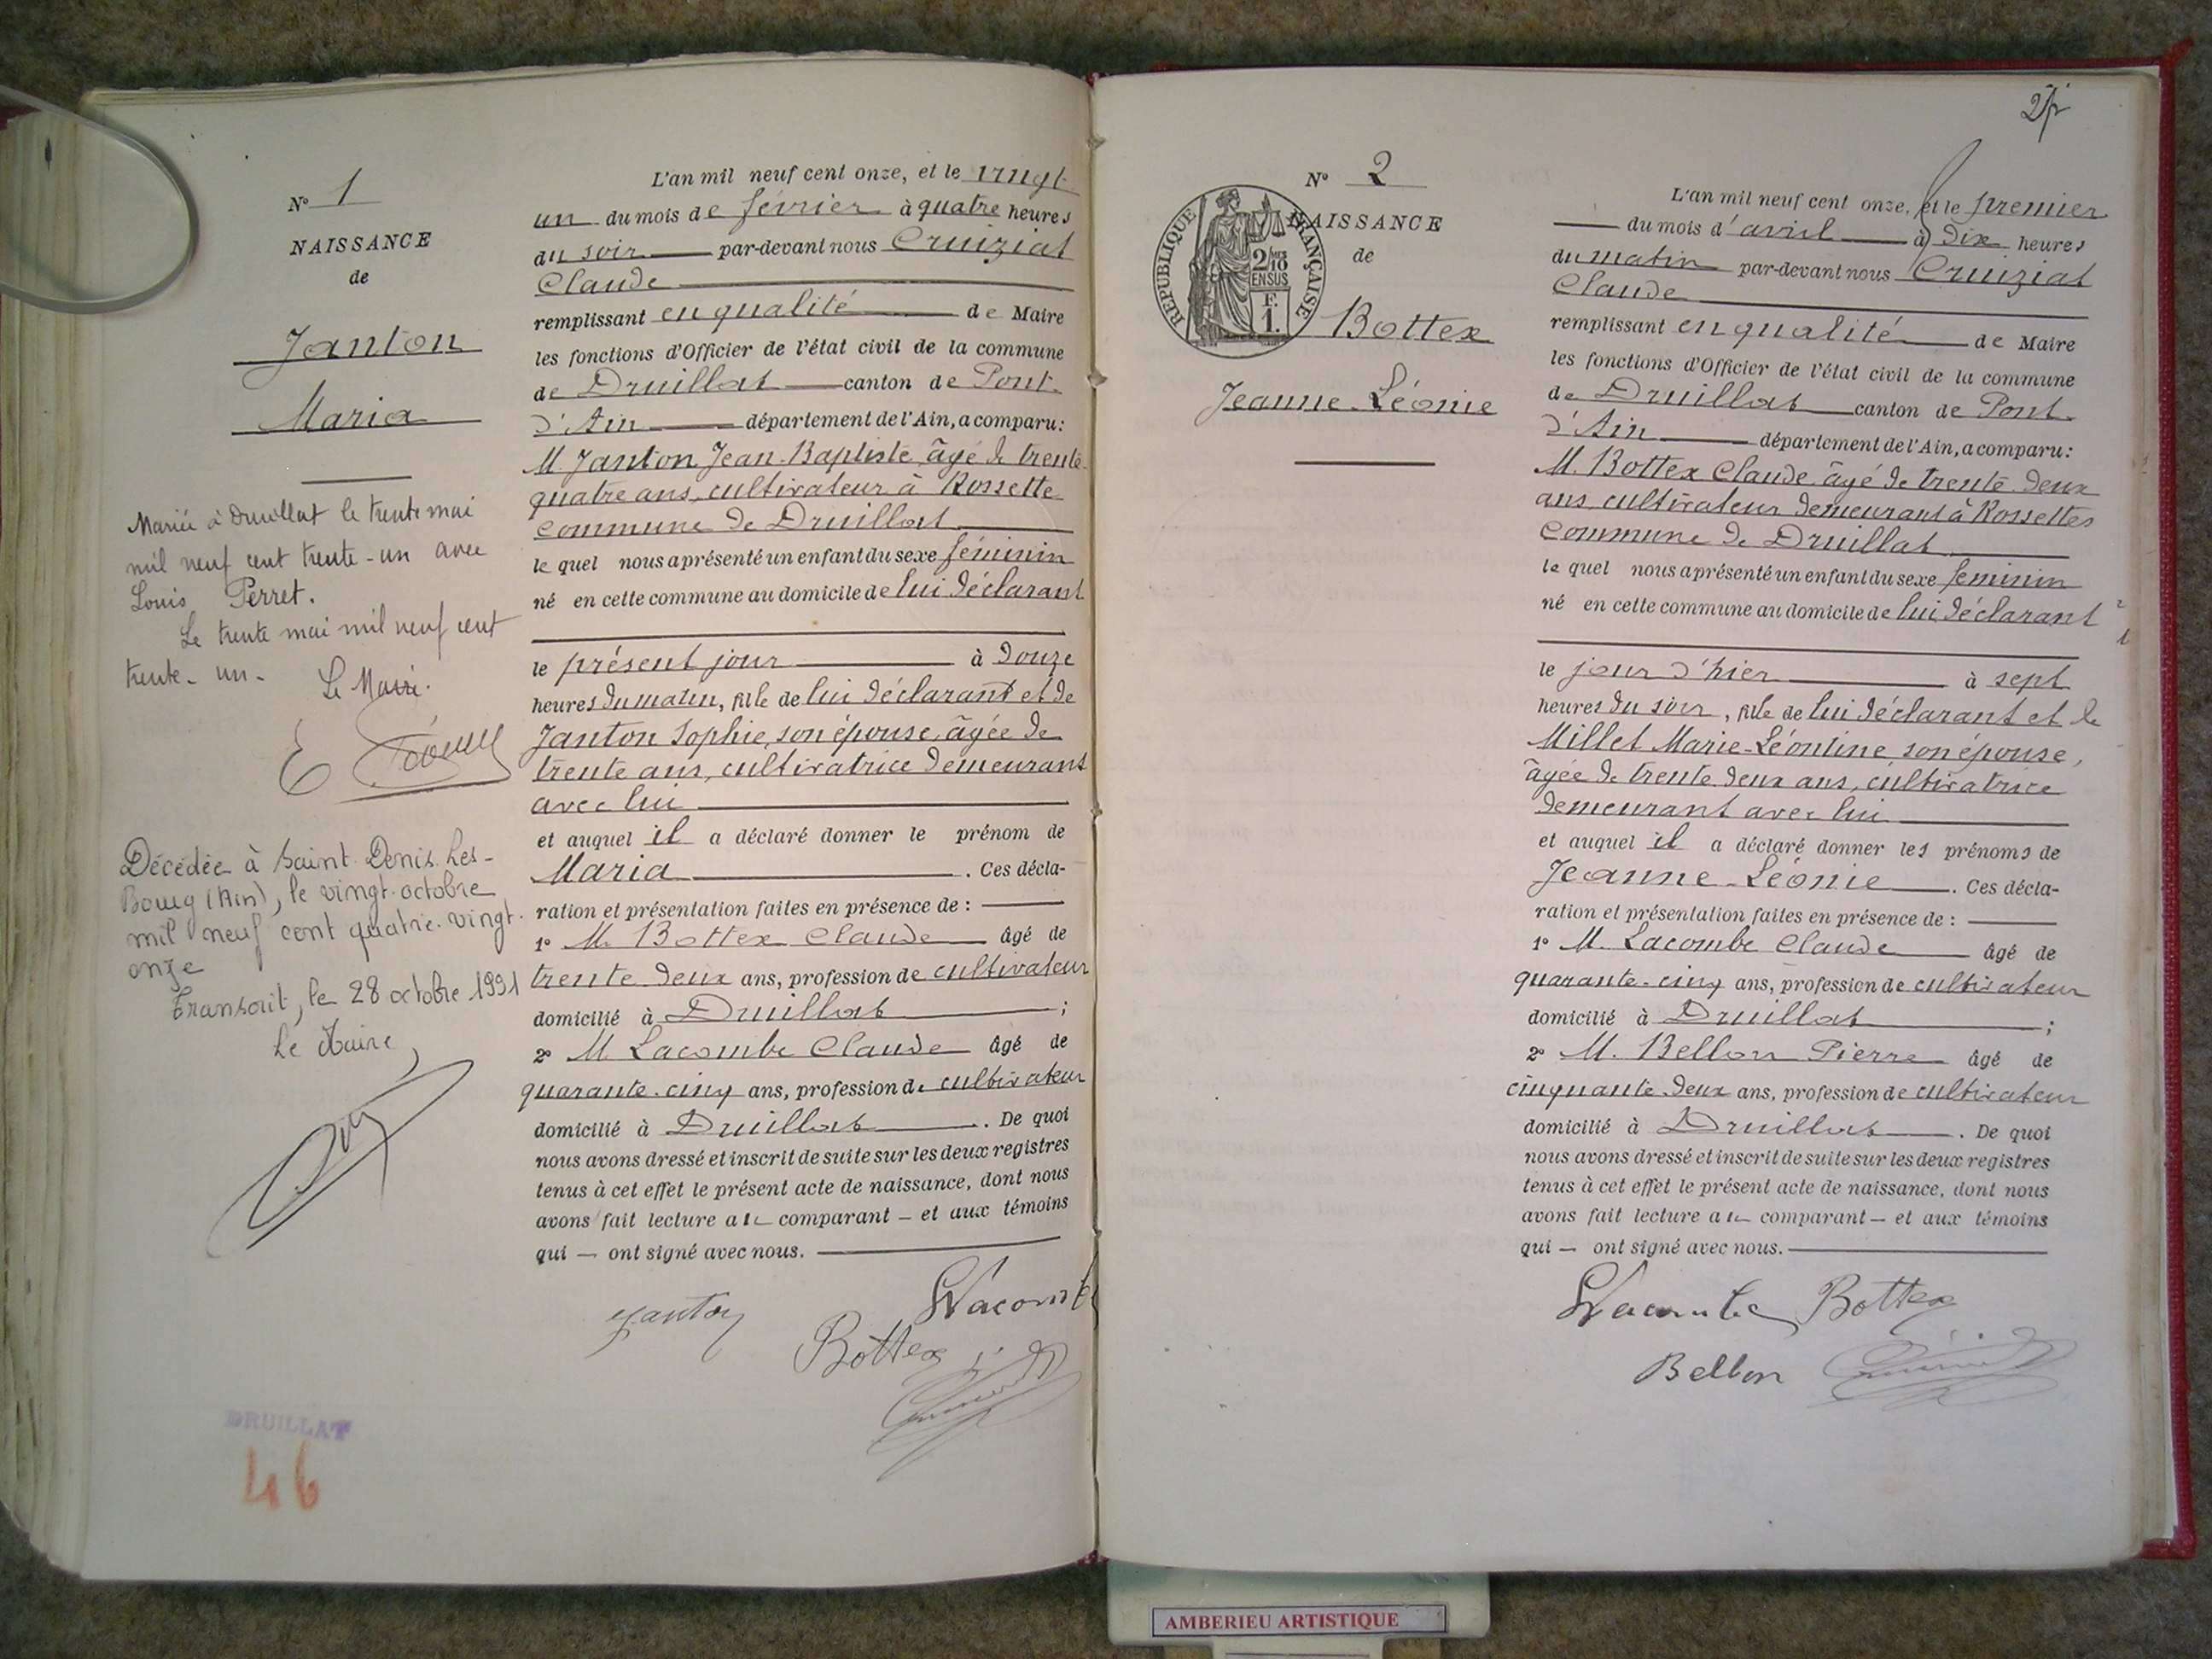 N° 1
NAISSANCE
de
Janton
Maria
Mariée à Druillat le trente mai
mil neuf cent trente-un avec
Louis Perret.
Le trente mai mil neuf cent
trente-un-
Le Maire.
Décédée à Saint Denis-Les-
Bourg (Ain), le vingt octobre
mil neuf cent quatre-vingt-
onze
Transcrit, le 28 octobre 1991
Le Maire,
DRUILLAT
46
L'an mil neuf cent onze, et le vingt
un du mois de février à quatre heures
du soir par-devant nous Cruiziat
Claude
remplissant en qualité de Maire
les fonctions d'Officier de l'état civil de la commune
de Druillat canton de Pont-
d'Ain département de l'Ain, a comparu:
M. Janton Jean-Baptiste âgé de trente-
quatre ans, cultivateur à Rossette
commune de Druillat
lequel nous a présenté un enfant du sexe féminin
né en cette commune au domicile de lui déclarant
le présent jour à douze
heures du matin, fille de lui déclarant et de
Janton Sophie, son épouse, âgée de
trente ans, cultivatrice demeurant
avec lui
et auquel il a déclaré donner le prénom de
Maria. Ces décla-
ration et présentation faites en présence de :
1° M. Bottex Claude âgé de
trente deux ans, profession de cultivateur
domicilié à Druillat ;
2° M. Lacombe Claude âgé de
quarante-cinq ans, profession de cultivateur
domicilié à Druillat. De quoi
nous avons dressé et inscrit de suite sur les deux registres
tenus à cet effet le présent acte de naissance, dont nous
avons fait lecture au comparant — et aux témoins
qui — ont signé avec nous.
Janton
Lacombe
Bottex
N° 2
NAISSANCE
de
RÉPUBLIQUE FRANÇAISE
2/10
EN SUS
F.
1.
Bottex
Jeanne-Léonie
L'an mil neuf cent onze, et le premier
du mois d'avril à dix heures
du matin par-devant nous Cruiziat
Claude
remplissant en qualité de Maire
les fonctions d'Officier de l'état civil de la commune
de Druillat canton de Pont-
d'Ain département de l'Ain, a comparu:
M. Bottex Claude âgé de trente-deux
ans, cultivateur demeurant à Rossettes
commune de Druillat
lequel nous a présenté un enfant du sexe féminin
né en cette commune au domicile de lui déclarant
le jour d'hier à sept
heures du soir, fille de lui déclarant et de
Millet Marie-Léontine son épouse,
âgée de trente deux ans, cultivatrice
demeurant avec lui
et auquel il a déclaré donner les prénoms de
Jeanne-Léonie. Ces décla-
ration et présentation faites en présence de :
1° M. Lacombe Claude âgé de
quarante-cinq ans, profession de cultivateur
domicilié à Druillat ;
2° M. Bellon Pierre âgé de
cinquante-deux ans, profession de cultivateur
domicilié à Druillat. De quoi
nous avons dressé et inscrit de suite sur les deux registres
tenus à cet effet le présent acte de naissance, dont nous
avons fait lecture au comparant — et aux témoins
qui — ont signé avec nous.
Lacombe Bottex
Bellon
AMBERIEU ARTISTIQUE